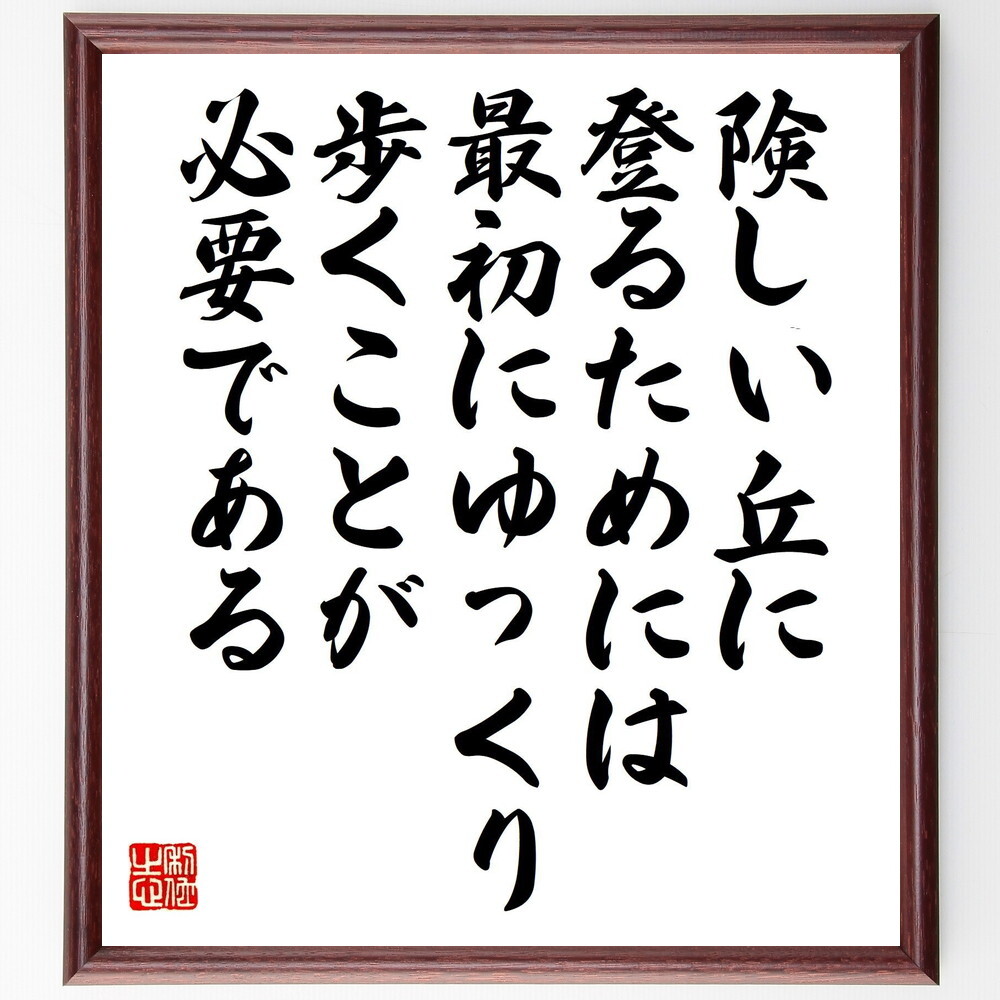 険しい丘に
登るためには
最初にゆっくり
歩くことが
必要である